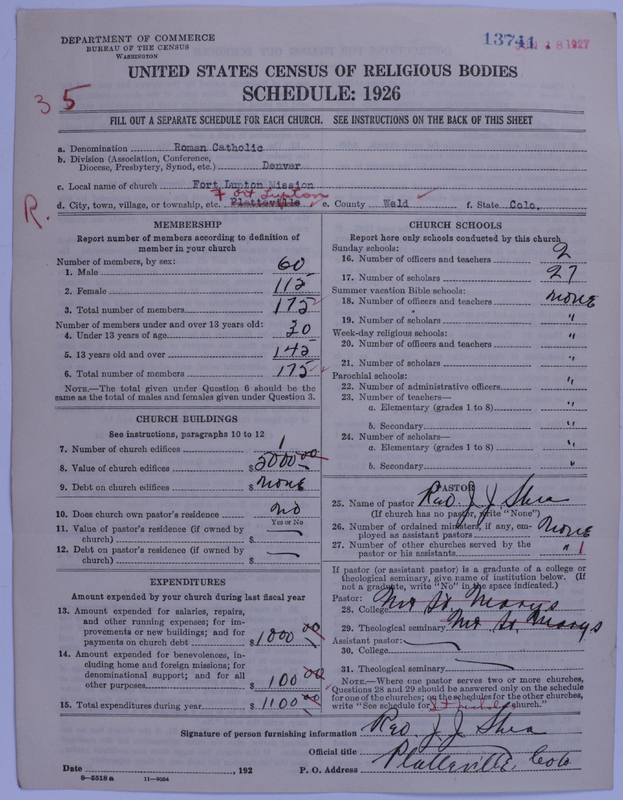 DEPARTMENT OF COMMERCE
BUREAU OF THE CENSUS
WASHINGTON
13741
JUN 18 1927
UNITED STATES CENSUS OF RELIGIOUS BODIES
SCHEDULE: 1926
35
FILL OUT A SEPARATE SCHEDULE FOR EACH CHURCH. SEE INSTRUCTIONS ON THE BACK OF THIS SHEET
a. Denomination Roman Catholic
b. Division (Association, Conference, Diocese, Presbytery, Synod, etc.) Denver
c. Local name of church Fort Lupton Mission
Fort Lupton
R.
d. City, town, village, or township, etc. Platteville e. County Weld f. State Colo.
MEMBERSHIP
Report number of members according to definition of
member in your church
Number of members, by sex:
1. Male 60
2. Female 115
3. Total number of members 175
Number of members under and over 13 years old:
4. Under 13 years of age 30
5. 13 years old and over 145
6. Total number of members 175
NOTE.—The total given under Question 6 should be the
same as the total of males and females given under Question 3.
CHURCH BUILDINGS
See instructions, paragraphs 10 to 12
7. Number of church edifices 1
8. Value of church edifices $ 5000 00
9. Debt on church edifices $ none
10. Does church own pastor's residence no
Yes or No
11. Value of pastor's residence (if owned by
church) $
12. Debt on pastor's residence (if owned by
church) $
EXPENDITURES
Amount expended by your church during last fiscal year
13. Amount expended for salaries, repairs,
and other running expenses; for im-
provements or new buildings; and for
payments on church debt $ 1000 00
14. Amount expended for benevolences, in-
cluding home and foreign missions; for
denominational support; and for all
other purposes $ 100 00
15. Total expenditures during year $ 1100 00
CHURCH SCHOOLS
Report here only schools conducted by this church
Sunday schools:
16. Number of officers and teachers 2
17. Number of scholars 27
Summer vacation Bible schools:
18. Number of officers and teachers none
19. Number of scholars "
Week-day religious schools:
20. Number of officers and teachers "
21. Number of scholars "
Parochial schools:
22. Number of administrative officers "
23. Number of teachers—
a. Elementary (grades 1 to 8) "
b. Secondary "
24. Number of scholars—
a. Elementary (grades 1 to 8) "
b. Secondary "
PASTOR
25. Name of pastor Rev. J J Shea
(If church has no pastor, write "None")
26. Number of ordained ministers, if any, em-
ployed as assistant pastors none
27. Number of other churches served by the
pastor or his assistants " 1
If pastor (or assistant pastor) is a graduate of a college or
theological seminary, give name of institution below. (If
not a graduate, write "No" in the space indicated.)
Pastor:
28. College Mt St Marys
29. Theological seminary Mt St Marys
Assistant pastor:
30. College
31. Theological seminary
NOTE.—Where one pastor serves two or more churches,
Questions 28 and 29 should be answered only on the schedule
for one of the churches; on the schedules for the other churches,
write "See schedule for church."
Signature of person furnishing information Rev. J. J. Shea
Official title
Date , 192 P. O. Address Platteville, Colo
8—5518a 11—9054